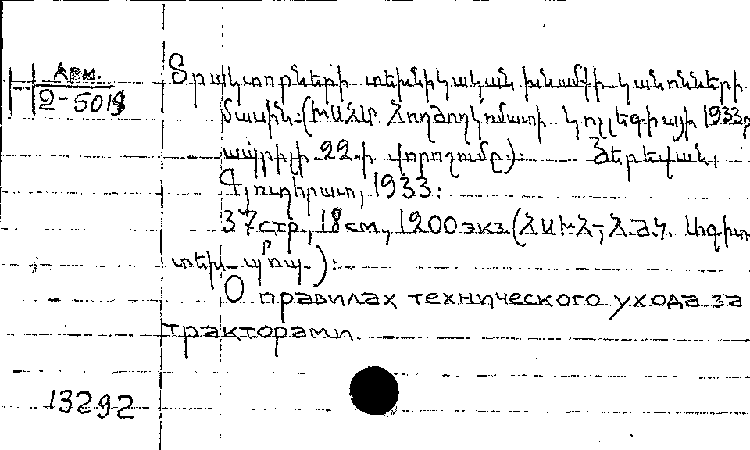 Арм.
2-5019
Տրակտորների տեխնիկական խնամքի կանոնների
մասին (ԽՍՀՄ Հողժողկոմատի կոլեգիայի 1933թ
ապրիլի 22-ի վորոշումը): Յերեվան,
Գյուղհրատ, 1933:
37 стр, 18 см, 1200 экз (ՀՍԽՀ, Ագիտ
տեխ.
О правилах технического ухода за
тракторами.
13292